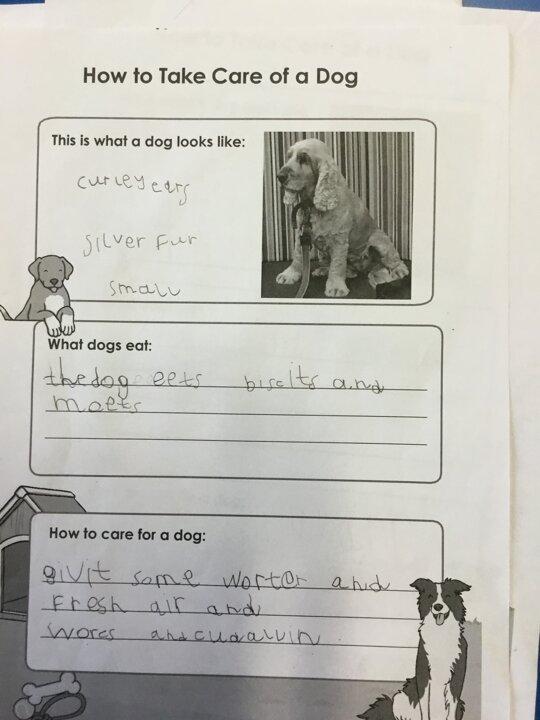 How to Take Care of a Dog
This is what a dog looks like:
curley ears
silver fur
small
What dogs eat:
the dog eets biscits and
meets
How to care for a dog:
givit some worter and
Fresh air and
wores and cudallin